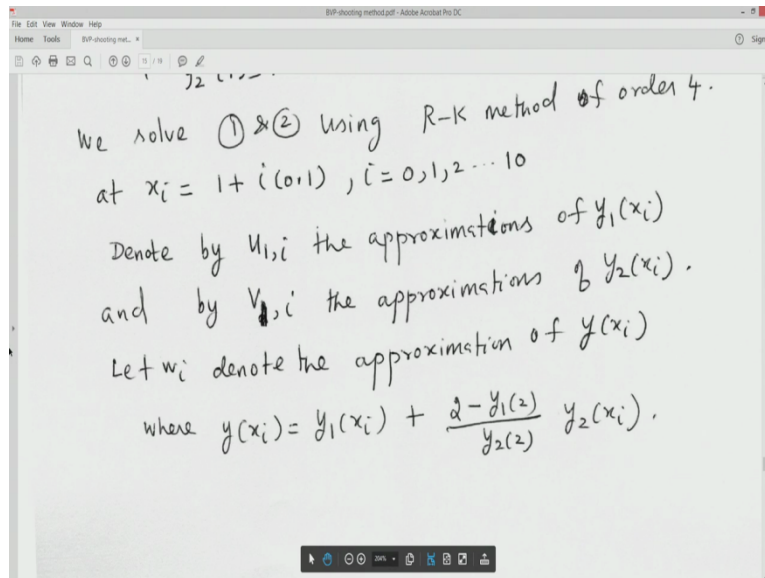 BVP-shooting method.pdf - Adobe Acrobat Pro DC
File Edit View Window Help
Home Tools BVP-shooting met... × Sign
15 / 19
We solve ① & ② using R-K method of order 4.
at xᵢ = 1 + i(0.1), i = 0,1,2 ... 10
Denote by u₁,ᵢ the approximations of y₁(xᵢ)
and by V₁,ᵢ the approximations of y₂(xᵢ).
Let wᵢ denote the approximation of y(xᵢ)
where y(xᵢ) = y₁(xᵢ) + (2 - y₁(2))/(y₂(2)) y₂(xᵢ).
204%